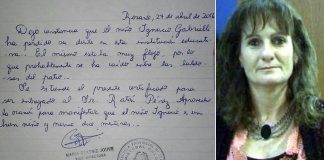 Rosario, 24 de abril de 2016
Dejo constancia que el niño Ignacio Gabrielli
ha perdido su diente en esta institución educati-
va. El mismo estaba muy flojo, por lo
que probablemente se ha caído entre las baldo-
sas del patio.
Se extiende el presente certificado para
ser entregado al Sr. Ratón Pérez. Aprovecho
la ocasión para manifestar que el niño Ignacio es un
buen niño y merece dos